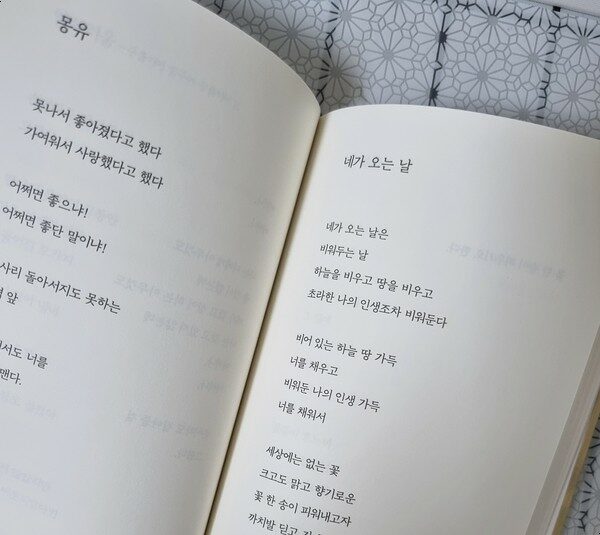 몽유
못나서 좋아졌다고 했다
가여워서 사랑했다고 했다
어쩌면 좋으냐!
어쩌면 좋단 말이냐!
사리 돌아서지도 못하는
앞
서도 너를
맨다.
네가 오는 날
네가 오는 날은
비워두는 날
하늘을 비우고 땅을 비우고
초라한 나의 인생조차 비워둔다
비어 있는 하늘 땅 가득
너를 채우고
비워둔 나의 인생 가득
너를 채워서
세상에는 없는 꽃
크고도 맑고 향기로운
꽃 한 송이 피워내고자
까치발 딛고